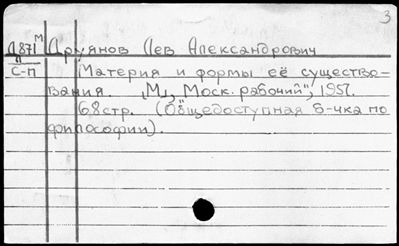 3
Д871м Друянов Лев Александрович
С-п Материя и формы её существо-
вания. "М", "Моск. рабочий", 1957.
68стр. (Общедоступная б-чка по
философии).